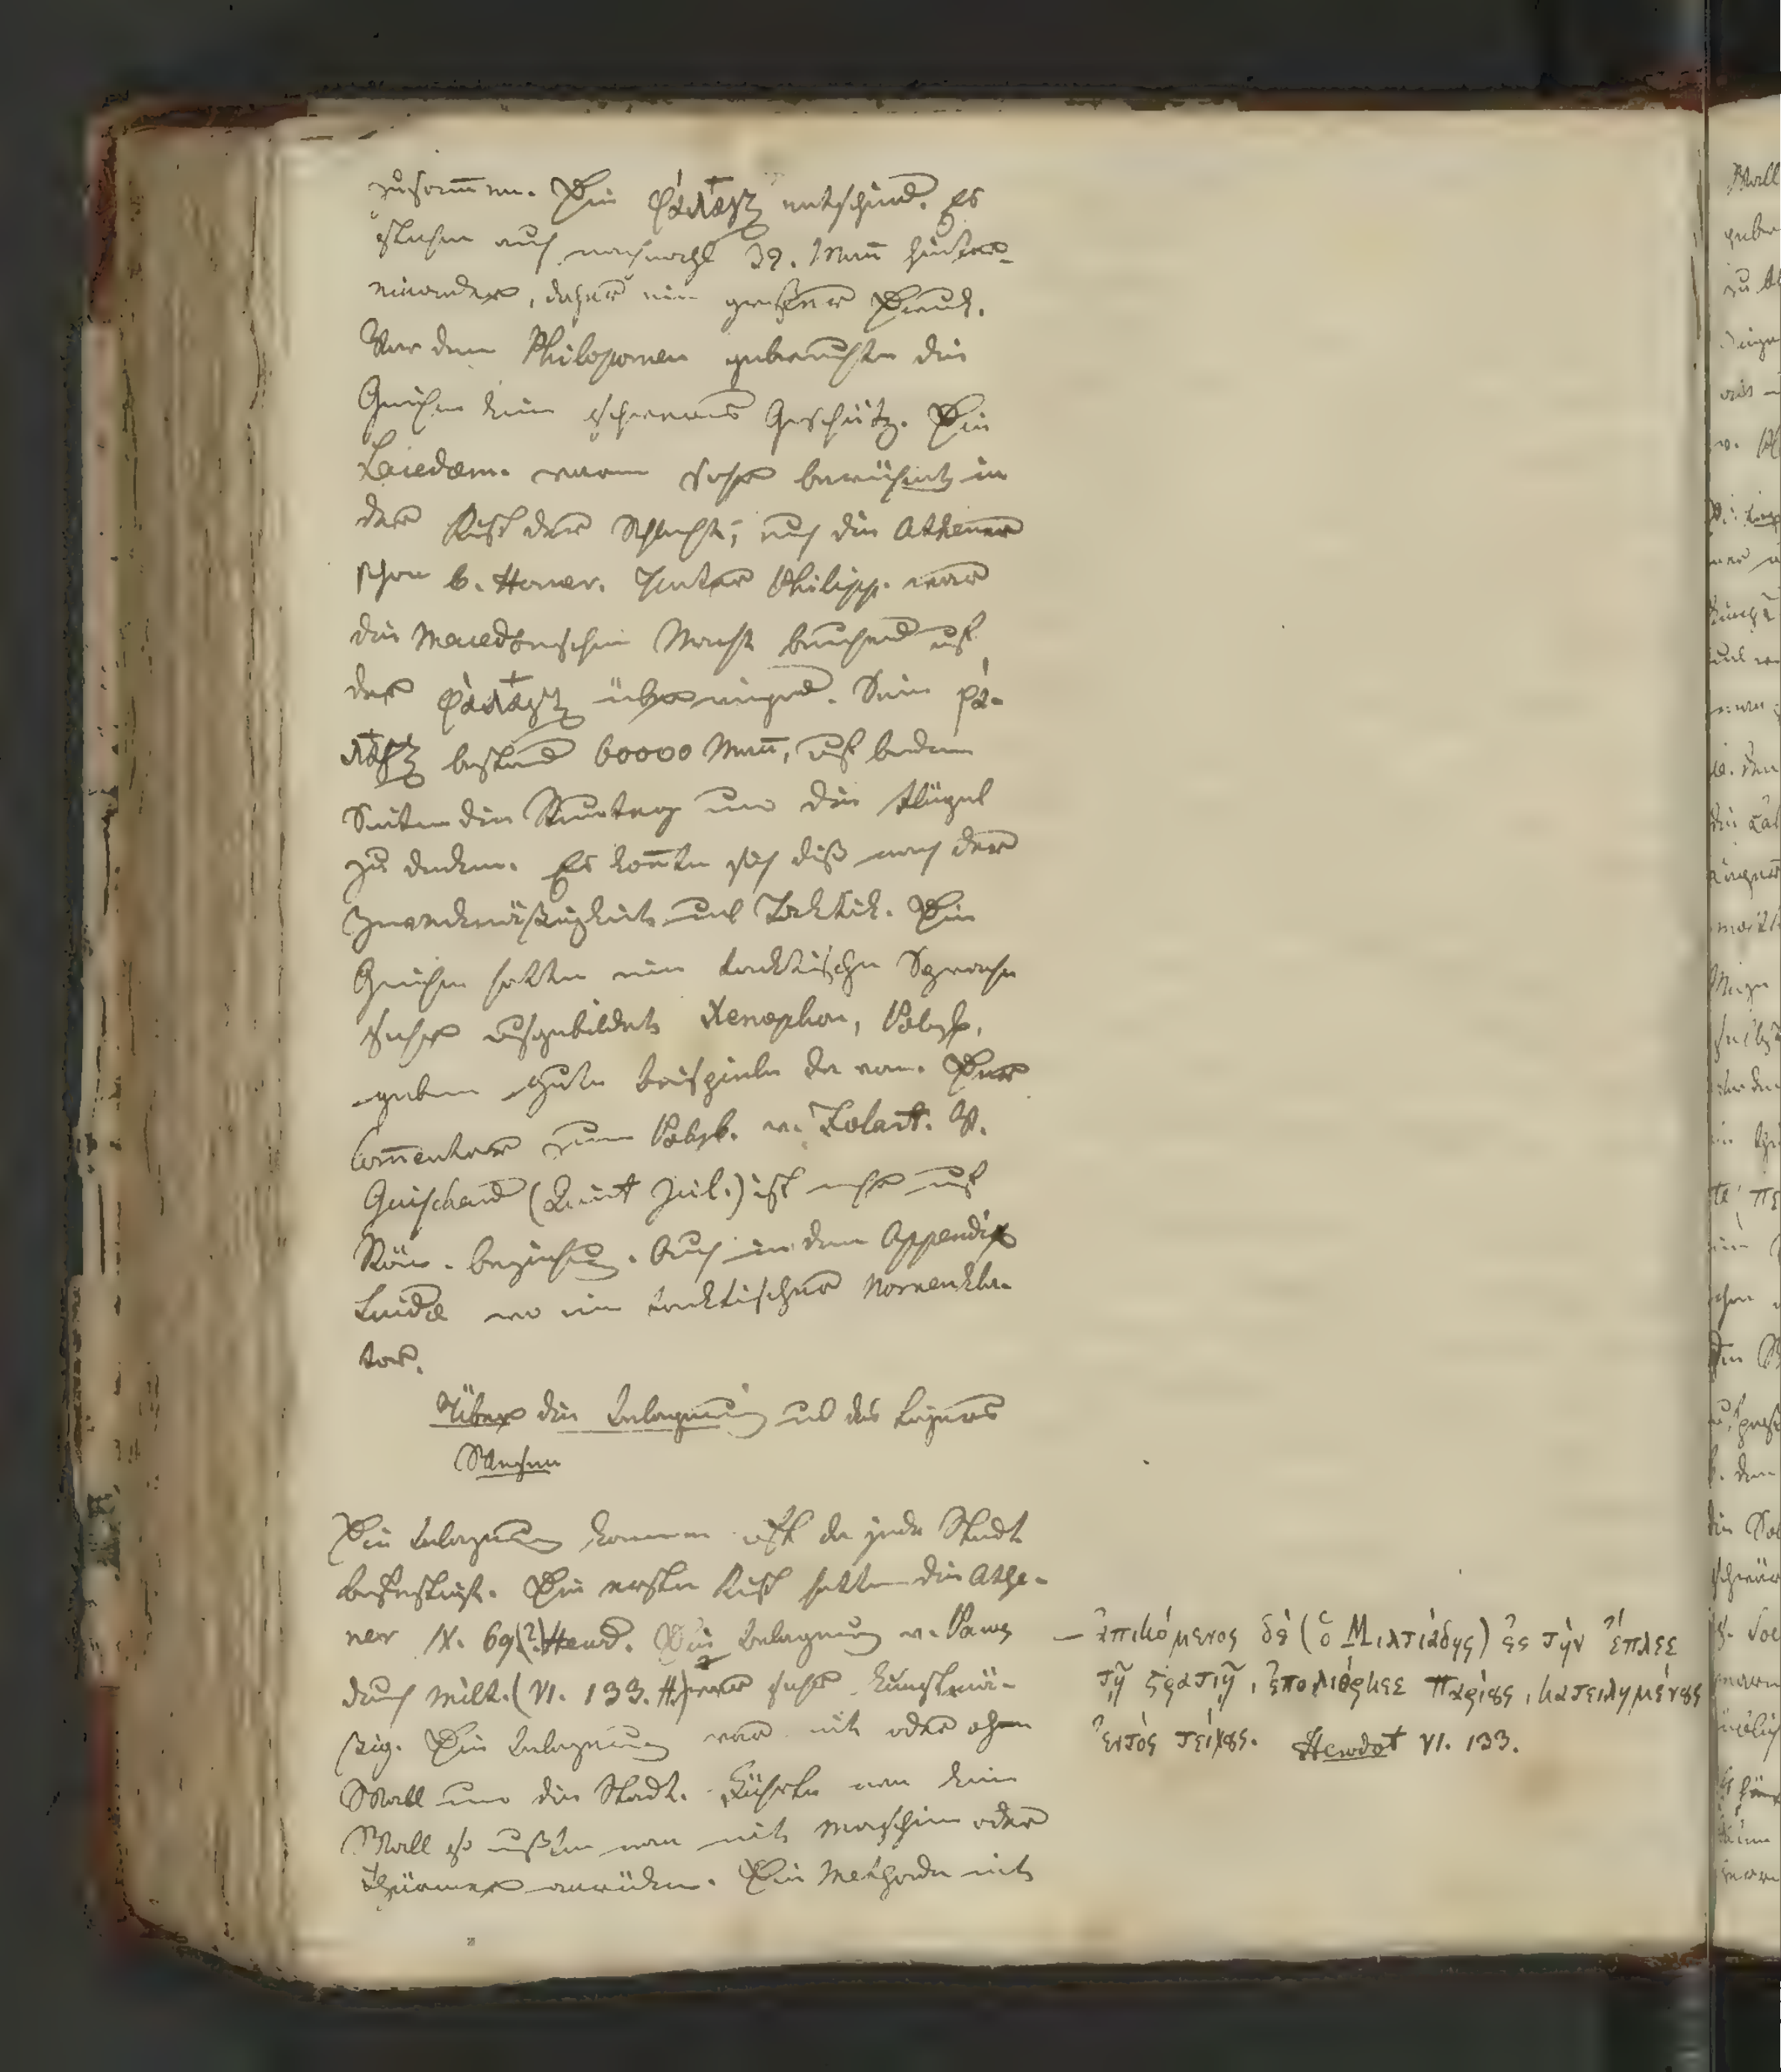 zusam̅en. Die φάλαγξ entschied. Es
stehen auch 32. Man̅ hinter-
einander, daher ein großer Druck.
Vor dem Philopomen gebrauchten die
Griechen kein schweres Geschütz. Die
Lacedaem. waren sehr berühmt in
der Kunst der Schlacht; auch die Athener
schon b. Homer. Unter Philipp. war
die Macedonischen Macht beruhend auf
der φάλαγξ überwiegend. Sein φά-
λαγξ bestand 60000 Man̅, auf beiden
Seiten die Reuterey um die Flügel
zu decken. Es kon̅te sich diß nach der
Zweckmäßigkeit und Taktik. Die
Griechen hatten eine tacktische Sprache
sehr ausgebildet Xenophon, Polyb.
geben gute Beispiele da von. Der
Com̅entar zum Polyb. v. Folart. V.
Guischard (Quint Jcil.) ist mehr auf
Röm. Beziehung. Auch in dem Appendix
Suidae wo ein tacktischer Nomenkla-
tor.
Über die Belagerung und das Lagern
Die Belagerung kommen oft da jede Stadt
befestigt. Die erste Kunst hatten die Athe-
ner IX. 69(?) Herod. Die Belagerung v. Paros
durch Milt. (VI. 133. H) war sehr kunstmä-
ßig. Die Belagerung war mit oder ohne
Wall um die Stadt. Führte man kein
Wall so mußten man mit Maschine oder
Thürmer anrücken. Die Methode mit
— ἀπικόμενος δὲ (ὁ Μιλτιάδης) ἐς τὴν ἔπλεε
τῇ ϛρατιῇ, ἐπολιόρκεε Παρίȣς, κατειλημένȣς
ἐντὸς τείχȣς. Herodot VI. 133.